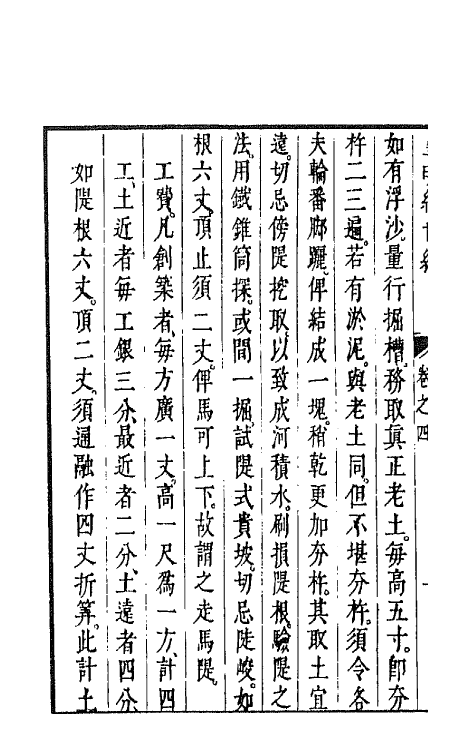 卷之四
如有浮沙量行掘槽。務取眞正老土。每高五寸。卽夯
杵二三遍。若有淤泥。與老土同。但不堪夯杵。須令各
夫輪番脚躧。俾結成一塊。稍乾更加夯杵。其取土宜
遠。切忌傍隄挖取。以致成河積水。刷損隄根。驗隄之
法。用鐵錐筒探。或間一掘。試隄式貴坡。切忌陡峻。如
根六丈。頂止須二丈。俾馬可上下。故謂之走馬隄。
工費。凡創築者、每方廣一丈。高一尺爲一方、計四
工、土近者每工銀三分、最近者二分、土遠者四分
如隄根六丈。頂二丈。須通融作四丈折筭。此計土